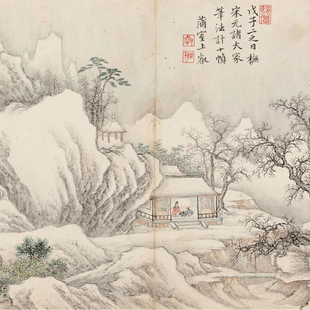 戊子二之日橅
宋元諸大家
筆法計十幀
蒲室上叡